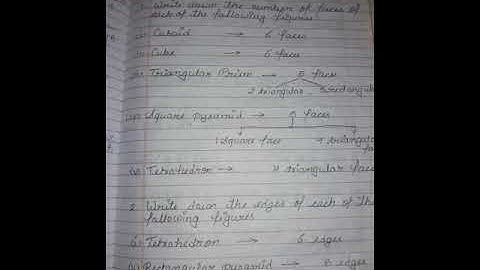 1. Write down the number of faces of
each of the following figures
Cuboid → 6 faces
Cube → 6 faces
Triangular Prism → 5 faces
2 triangular 3 rectangular
Square pyramid → 5 faces
1 square face 4 triangular
Tetrahedron → 4 triangular faces
2. Write down the edges of each of the
following figures
(i) Tetrahedron → 6 edges
(ii) Rectangular pyramid → 8 edges